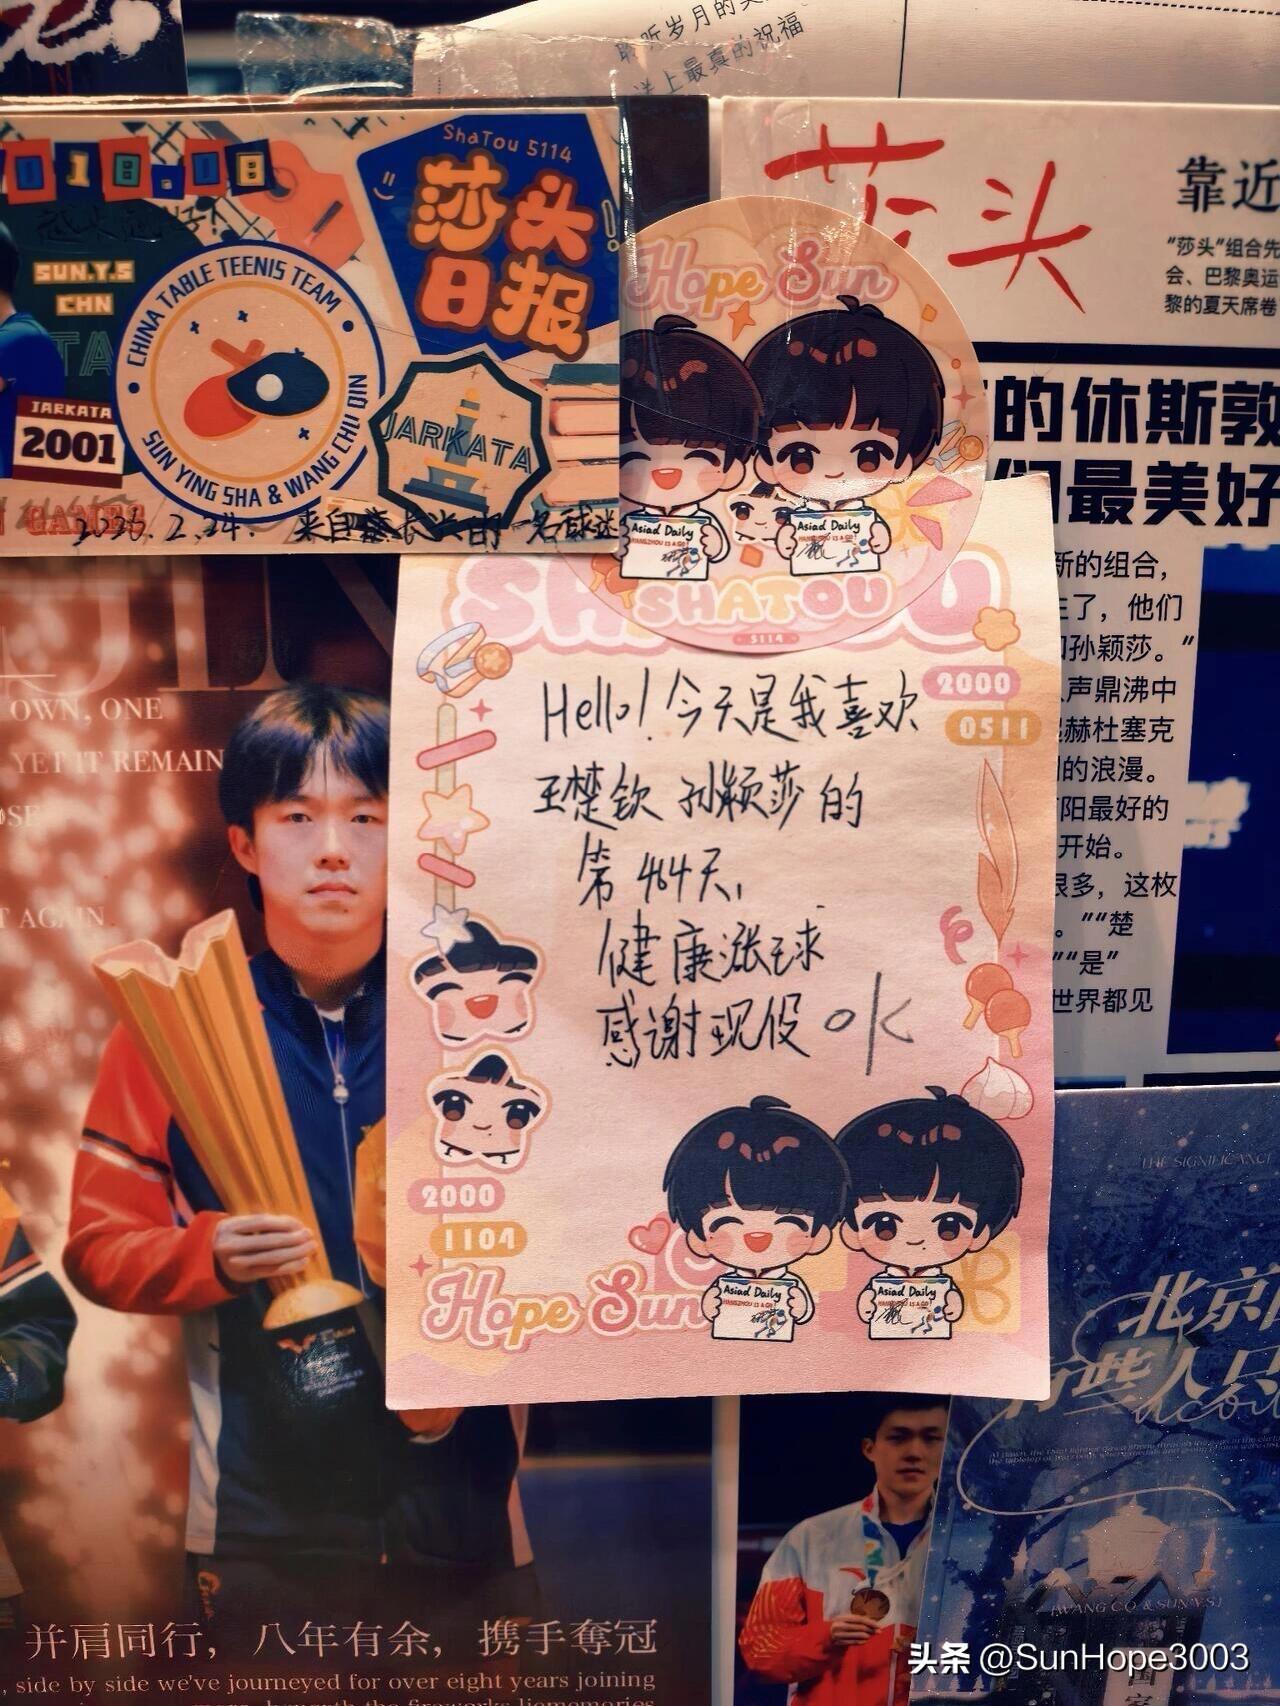 聆听岁月的
送上最真的祝福
018.08
ShaTou 5114
莎头
日报
SUN.Y.S
CHN
CHINA TABLE TEENIS TEAM
SUN YING SHA & WANG CHU QIN
JARKATA
2001
JARKATA
GAMES
2026.2.24. 来自长兴的一名球迷
莎头
靠近
“莎头”组合先
会、巴黎奥运
黎的夏天席卷
的休斯敦
们最美好
新的组合,
生了，他们
和孙颖莎。“
人声鼎沸中
起赫杜塞克
的浪漫。
阳最好的
开始。
很多，这枚
。”“楚
”“是”
世界都见
Hope Sun
Asiad Daily
HANGZHOU IS A GO!
Asiad Daily
HANGZHOU IS A GO!
SHATOU
5114
2000
0511
Hello! 今天是我喜欢
王楚钦 孙颖莎的
第464天,
健康涨球
感谢现役 OK
2000
1104
Hope Sun
Asiad Daily
HANGZHOU IS A GO!
Asiad Daily
HANGZHOU IS A GO!
OWN, ONE
YET IT REMAIN
OSE
T AGAIN
并肩同行，八年有余，携手夺冠
, side by side we've journeyed for over eight years joining
THE SIGNIFICANCE
北京
有些人只
WANG C.Q & SUN Y.S
头条 @SunHope3003